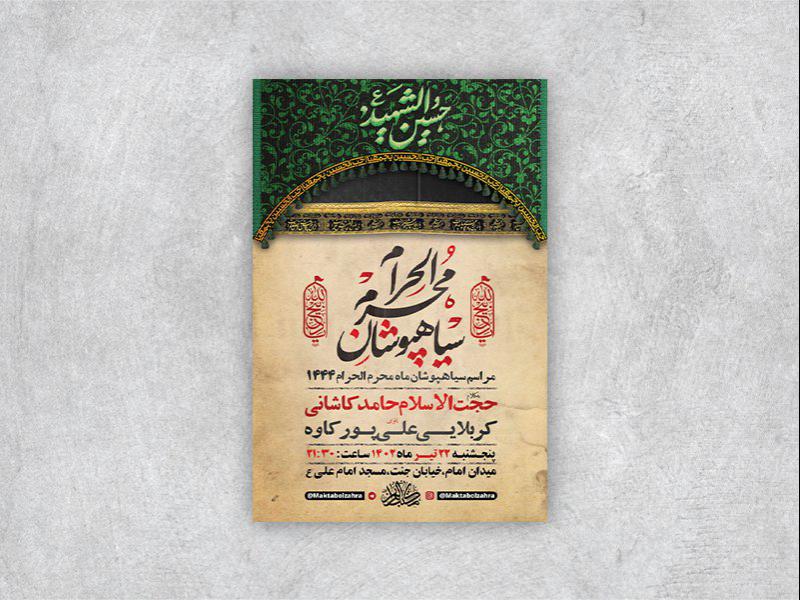 حسین الشهید ع
محرم الحرام
سیاهپوشان
مراسم سیاهپوشان ماه محرم الحرام ۱۴۴۴
حجت الاسلام حامد کاشانی
کربلایی علی پور کاوه
پنجشنبه ۲۲ تیر ماه ۱۴۰۲ ساعت: ۲۱:۳۰
میدان امام،خیابان جنت،مسجد امام علی ع
@Maktabolzahra @Maktabolzahra